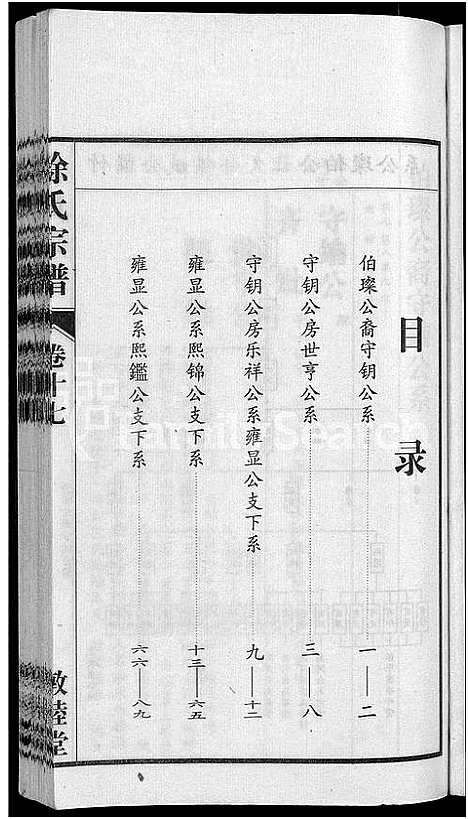 目录
伯璨公裔守钥公系 一——二
守钥公房世亨公系 三——八
守钥公房乐祥公系雍显公支下系 九——十二
雍显公系熙锦公支下系 十三——六五
雍显公系熙鑑公支下系 六六——八九
徐氏宗谱
卷十七
敦睦堂